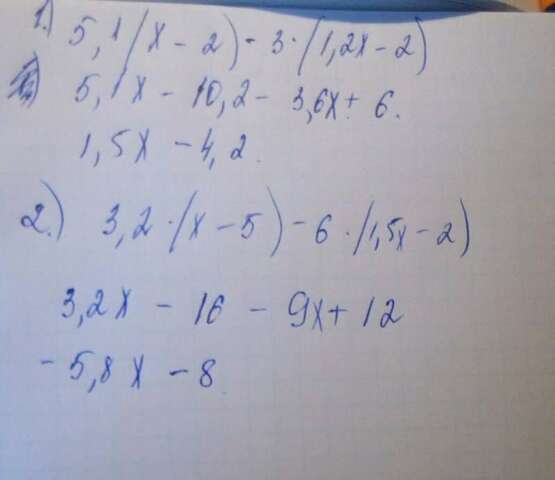 1.) 5,1(x - 2) - 3 · (1,2x - 2)
5,1x - 10,2 - 3,6x + 6.
1,5x - 4,2.
2.) 3,2 · (x - 5) - 6 · (1,5x - 2)
3,2x - 16 - 9x + 12
- 5,8x - 8